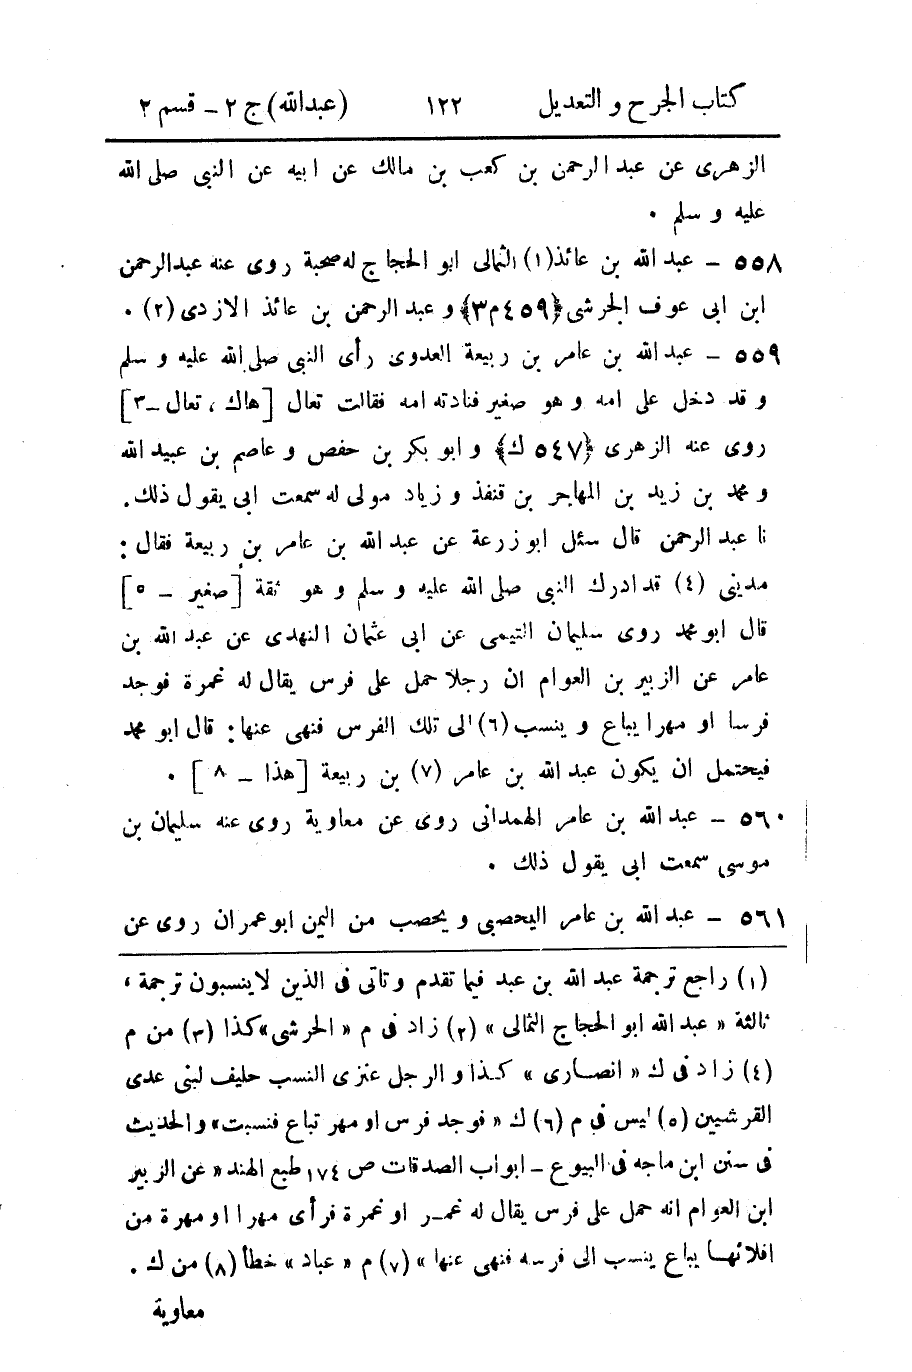 كتاب الجرح و التعديل ١٢٢ (عبدالله) ج ٢ - قسم ٢
الزهرى عن عبد الرحمن بن كعب بن مالك عن ابيه عن النبى صلى الله
عليه و سلم .
٥٥٨ - عبد الله بن عائذ (١) الثمالى ابو الحجاج له صحبة روى عنه عبدالرحمن
ابن ابى عوف الجرشى ﴿٤٥٩ م٣﴾ و عبد الرحمن بن عائذ الازدى (٢) .
٥٥٩ - عبد الله بن عامر بن ربيعة العدوى رأى النبى صلى الله عليه و سلم
و قد دخل على امه و هو صغير فنادته امه فقالت تعال [هاك ، تعال -٣]
روى عنه الزهرى ﴿٥٤٧ ك﴾ و ابو بكر بن حفص و عاصم بن عبيد الله
و محمد بن زيد بن المهاجر بن قنفذ و زياد مولى له سمعت ابى يقول ذلك .
نا عبد الرحمن قال سئل ابو زرعة عن عبد الله بن عامر بن ربيعة فقال :
مدينى (٤) قد ادرك النبى صلى الله عليه و سلم و هو ثقة [صغير - ٥]
قال ابو محمد روى سليمان التيمى عن ابى عثمان النهدى عن عبد الله بن
عامر عن الزبير بن العوام ان رجلا حمل على فرس يقال له غمرة فوجد
فرسا او مهرا يباع و ينسب (٦) الى تلك الفرس فنهى عنها : قال ابو محمد
فيحتمل ان يكون عبد الله بن عامر (٧) بن ربيعة [هذا - ٨] .
٥٦٠ - عبد الله بن عامر الهمدانى روى عن معاوية روى عنه سليمان بن
موسى سمعت ابى يقول ذلك .
٥٦١ - عبد الله بن عامر اليحصبى و يحصب من اليمن ابو عمران روى عن
(١) راجع ترجمة عبد الله بن عبد فيما تقدم و تاتى فى الذين لا ينسبون ترجمة ،
ثالثة « عبد الله ابو الحجاج الثمالى » (٢) زاد فى م « الحرشى » كذا (٣) من م
(٤) زاد فى ك « انصارى » كذا و الرجل عنزى النسب حليف لبنى عدى
القرشيين (٥) ليس فى م (٦) ك « فوجد فرس او مهر تباع فنسبت » و الحديث
فى سنن ابن ماجه فى البيوع - ابواب الصدقات ص ١٧٤ طبع الهند « عن الزبير
ابن العوام انه حمل على فرس يقال له غمر او غمرة فرأى مهرا او مهرة من
افلائها يباع ينسب الى فرسه فنهى عنها » (٧) م « عباد » خطأ (٨) من ك .
معاوية